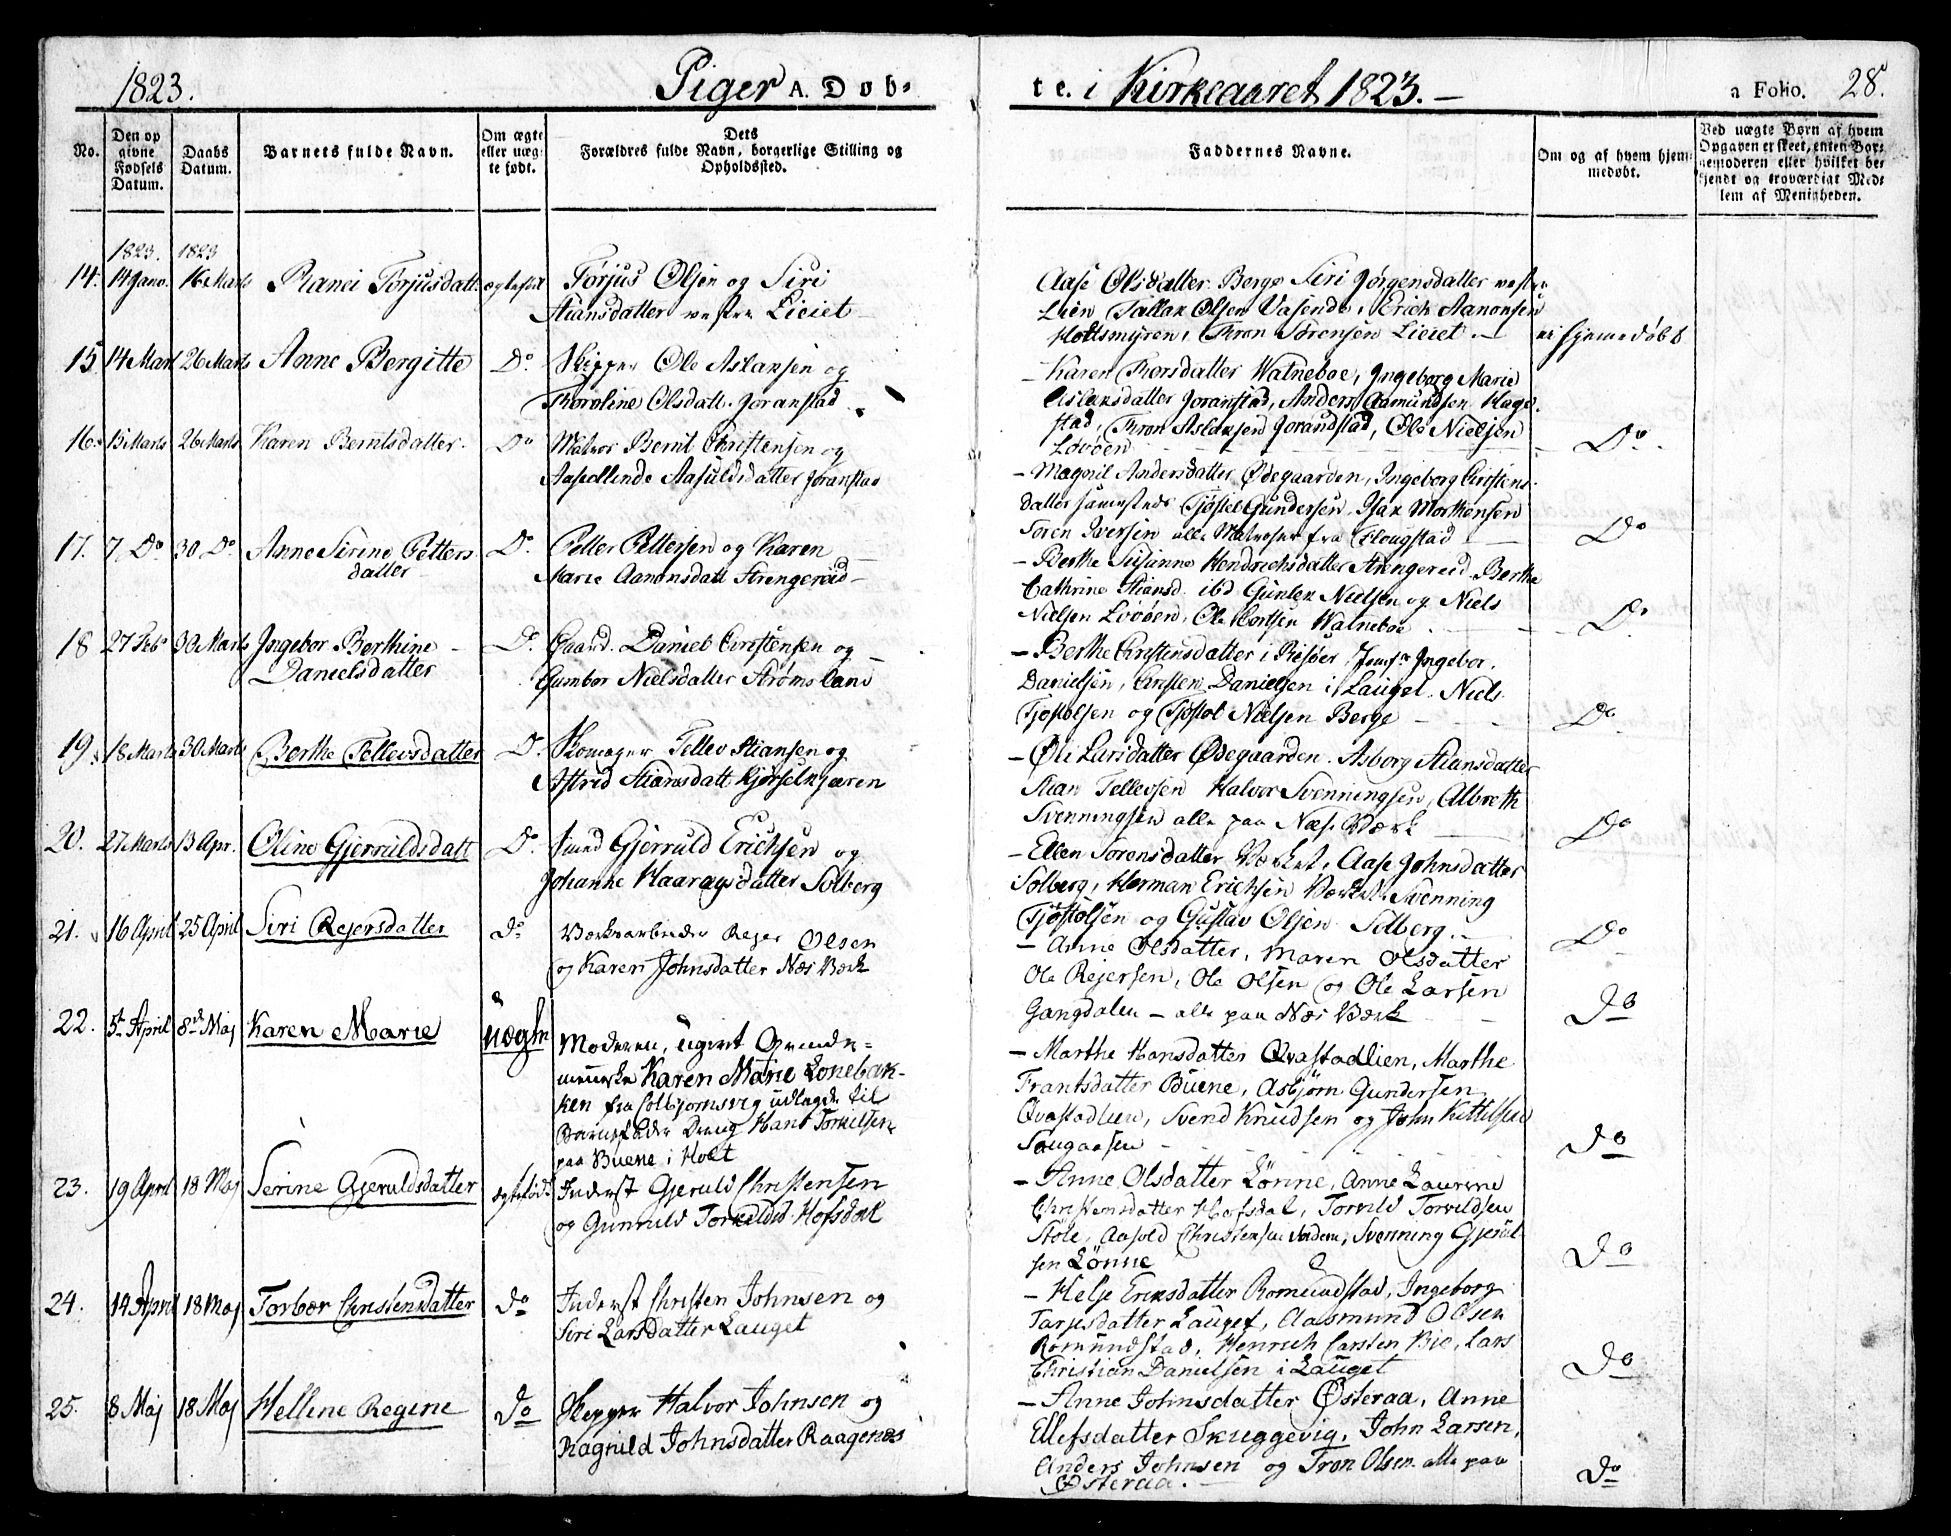 1823. Piger A. Døb-
te. i Kirkeaaret 1823. —
a Folio. 28.
No.
Den op
givne
Fødsels
Datum.
Daabs
Datum.
Barnets fulde Navn.
Om ægte
eller uæg-
te født.
Dets
Forældres fulde Navn, borgerlige Stilling og
Opholdssted.
Faddernes Navne.
Om og af hvem hjem-
medøbt.
Ved uægte Børn af hvem
Opgaven er skeet, enten Bar-
nemoderen eller hvilket be-
kjendt og troværdigt Med-
lem af Menigheden.
1823. 1823
14. 14 Janv. 16 Marts Ranei Torjusdatt. ægtefød Torjus Olsen og Siri
Stiansdatter vestre Lieiet
Aase Olsdatter Berge Siri Jørgensdatter vestre
Lien Tallak Olsen Vasende, Erich Aanonsen
Holtsmyren, Thron Sørensen Lieiet. — ei hjemedøbt
15 14 Mart 26 Marts Anne Bergitte Do. Skipper Ole Aslaksen og
Thoroline Olsdatt. Joranstad
— Karen Thorsdatter Watneboe, Ingeborg Marie
Aslaksdatter Joranstad, Anders Aamundsen Hage-
stad, Thron Aslaksen Jorandstad, Ole Nielsen
Lovøen Do.
16. 15 Marts 26 Marts Karen Berntsdatter. Do Matros Bernt Christensen og
Aasedlinde Aasuldsdatter Joranstad
— Magnil Andersdatter Ødegaarden, Ingeborg Cristens-
datter sammesteds Tjøstel Gundersen, Isak Morthensen
Søren Iversen alle Matroser fra Flougstad Do
17. 7 Do 30 Do Anne Sirine Petters
datter Do. Petter Pettersen og Karen
Marie Aanonsdatt Strengereid —
— Berthe Susanne Hendrichsdatter Strengereid Berthe
Cathrine Stiansd. ibd. Gunlek Nielsen og Niels
Nielsen Lovøen, Ole Watneboe Do.
18 27 Feb. 30 Marts Ingebor Berthine
Danielsdatter Do. Gaard. Daniel Cristensen og
Gumbor Nielsdatter Strømsland
— Berthe Cristensdatter i Risøer, Jomfr Ingebor.
Danielsen, Cristen Danielsen i Lauget. Niels
Tjøstolsen og Tjøstol Nielsen Berge Do.
19. 18 Marts 30 Marts Berthe Tellevsdatter Do. Skomager Tellev Stiansen og
Astrid Stiansdatt Kjørselkjæren
— Øli Larsdatter Ødegaarden. Asborg Stiansdatter
Stian Tellevsen Halvor Svenningsen, Albreth
Svenningsen alle paa Næs Værk Do
20. 27 Marts 13 Apr. Oline Gjeruldsdatt Do. Smed Gjeruld Erichsen og
Johanne Haaragsdatter Solberg
— Ellen Sørensdatter Værket, Aase Johnsdatter
Solberg, Herman Erichsen Værket Svenning
Tjøstolsen og Gustav Olsen Solberg. Do
21. 16 April 25 April Siri Rejersdatter Do Værksarbeider Rejer Olsen
og Karen Johnsdatter Næs Værk
— Anne Olsdatter, Maren Olsdatter
Ole Rejersen, Ole Olsen og Ole Larsen
Gangdalen — alle paa Næs Værk Do
22. 5t April 8de Maj Karen Marie uægte Moderen, ugivt Qvinde-
menneske Karen Marie Lonebak-
ken fra Colbjørnsvig udlagde til
Barnefader Dreng Hans Torkilsen
paa Buene i Holt
— Marthe Hansdatter Qvastadlien, Marthe
Frantsdatter Buene, Asbjørn Gundersen
Qvastadlien, Svend Knudsen og John Kittilsen
Songaasen Do
23. 19 April 18 Maj Serine Gjeruldsdatter ægtefødt Inderst Gjeruld Christensen
og Gunnuld Torkildsd. Hofsdal
— Anne Olsdatter Lönne, Anne Laurine
Christensdatter Hofsdal, Torkild Torkildsen
Stole, Aasold Christensen, Svenning Gjerul-
sen Lönne Do
24. 14 April 18 Maj Torbor Christensdatter Do Inderst Christen Johnsen og
Siri Larsdatter Lauget
— Helje Eriksdatter Romundstad, Ingeborg
Tarjesdatter Lauget, Aasmund Olsen
Romundstad, Henrich Carsten Bie, Lars
Christian Danielsen i Lauget Do
25. 8 Maj 18 Maj Hellene Regine Do Skipper Halvor Johnsen og
Ragnild Johnsdatter Raagenæs
— Anne Johnsdatter Østeraa, Anne
Ellefsdatter Skuggevig, John Larsen,
Anders Johnsen og Tron Olsen alle paa
Østeraa. Do